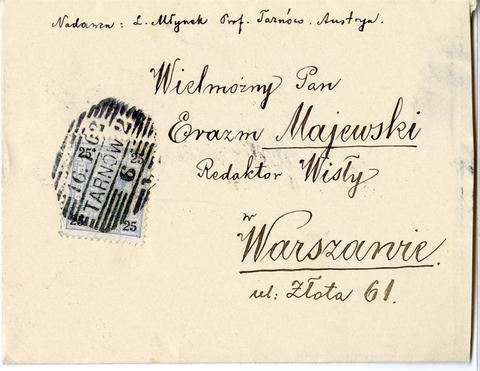 Nadawca: L. Młynek Prof. Tarnów. Austrya.
Wielmożny Pan
Erazm Majewski
Redaktor Wisły
w
Warszawie.
ul: Złota 61.
TARNÓW 2
25
25
25